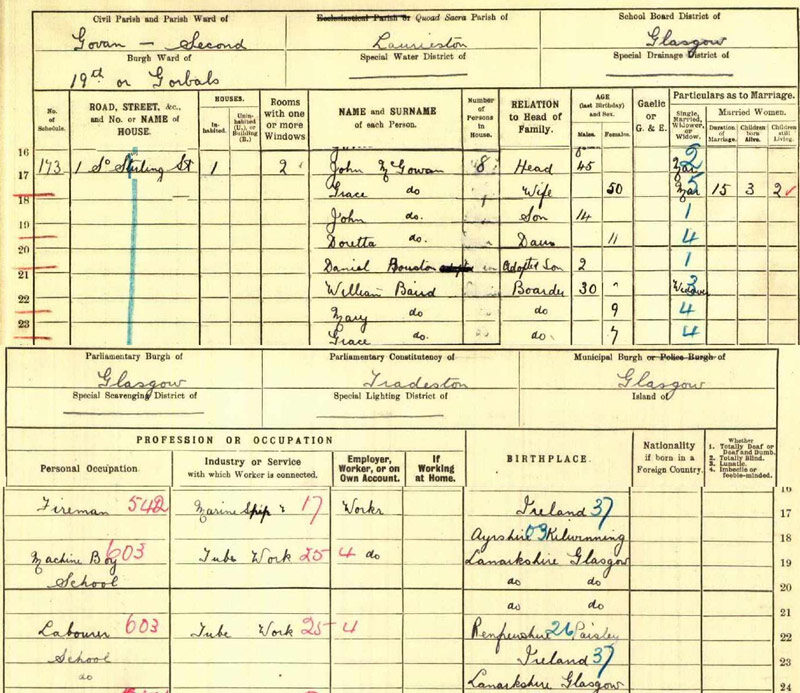 Civil Parish and Parish Ward of
Govan — Second
Burgh Ward of
19th or Gorbals
Ecclesiastical Parish or Quoad Sacra Parish of
Laurieston
Special Water District of
School Board District of
Glasgow
Special Drainage District of
No. of Schedule.
ROAD, STREET, &c., and No. or NAME of HOUSE.
HOUSES.
In-habited.
Unin-habited (U.), or Building (B.)
Rooms with one or more Windows
NAME and SURNAME of each Person.
Number of Persons in House.
RELATION to Head of Family.
AGE (last Birthday) and Sex.
Males.
Females.
Gaelic or G. & E.
Particulars as to Marriage.
Single, Married, Widower, or Widow.
Married Women.
Duration of Marriage.
Children born Alive.
Children still Living.
16
17 173 1 So Stirling St 1 2 John McGowan 8 Head 45 Mar 2
18 Grace do Wife 50 Mar 5 15 3 2 ✓
19 John do. Son 14 1
20 Doretta do. Daur 11 4
21 Daniel Bouston Adopted Son 2 1
22 William Baird Boarder 30 " Widower 3
23 Mary do do 9 4
Grace do. do. 7 4
Parliamentary Burgh of
Glasgow
Special Scavenging District of
Parliamentary Constitutency of
Tradeston
Special Lighting District of
Municipal Burgh or Police Burgh of
Glasgow
Island of
PROFESSION OR OCCUPATION
Personal Occupation.
Industry or Service with which Worker is connected.
Employer, Worker, or on Own Account.
If Working at Home.
BIRTHPLACE.
Nationality if born in a Foreign Country.
Whether
1. Totally Deaf or Deaf and Dumb.
2. Totally Blind.
3. Lunatic.
4. Imbecile or feeble-minded.
16
Fireman 542 Marine Ship 17 Workr Ireland 37 17
Ayrshire 03 Kilwinning 18
Machine Boy 603 Tube Work 25 4 do Lanarkshire Glasgow 19
School do do 20
do do 21
Labourer 603 Tube Work 25 4 Renfrewshire 26 Paisley 22
School Ireland 37 23
do Lanarkshire Glasgow 24